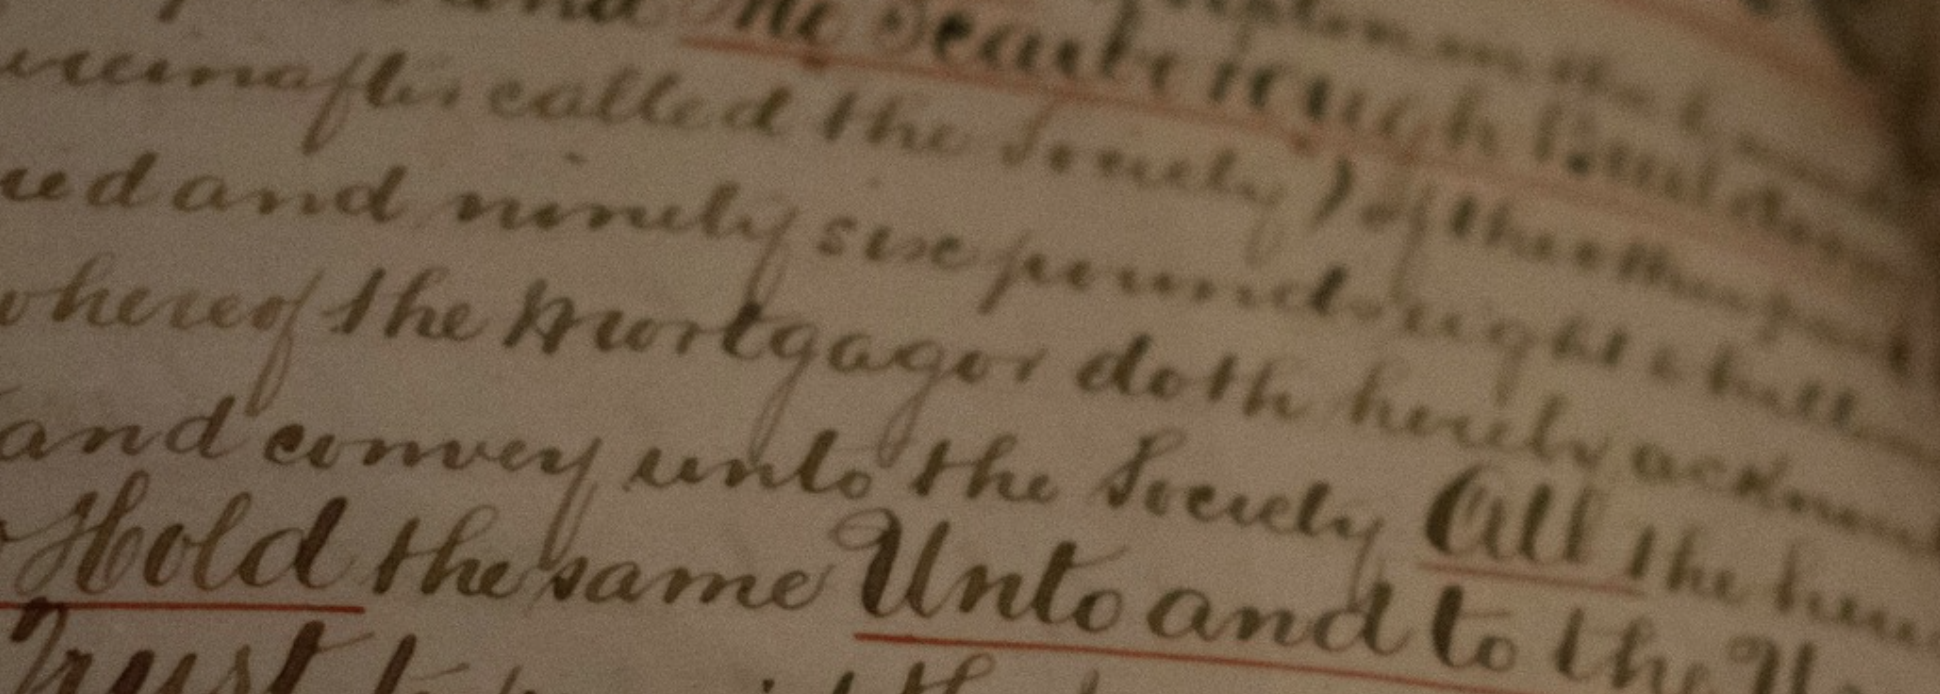 and The Scarborough Build
hereinafter called the Society) of the other part
red and ninety six pounds eight shill
whereof the Mortgagor doth hereby acknow
and convey unto the Society All the here
Hold the same Unto and to the U
Trust